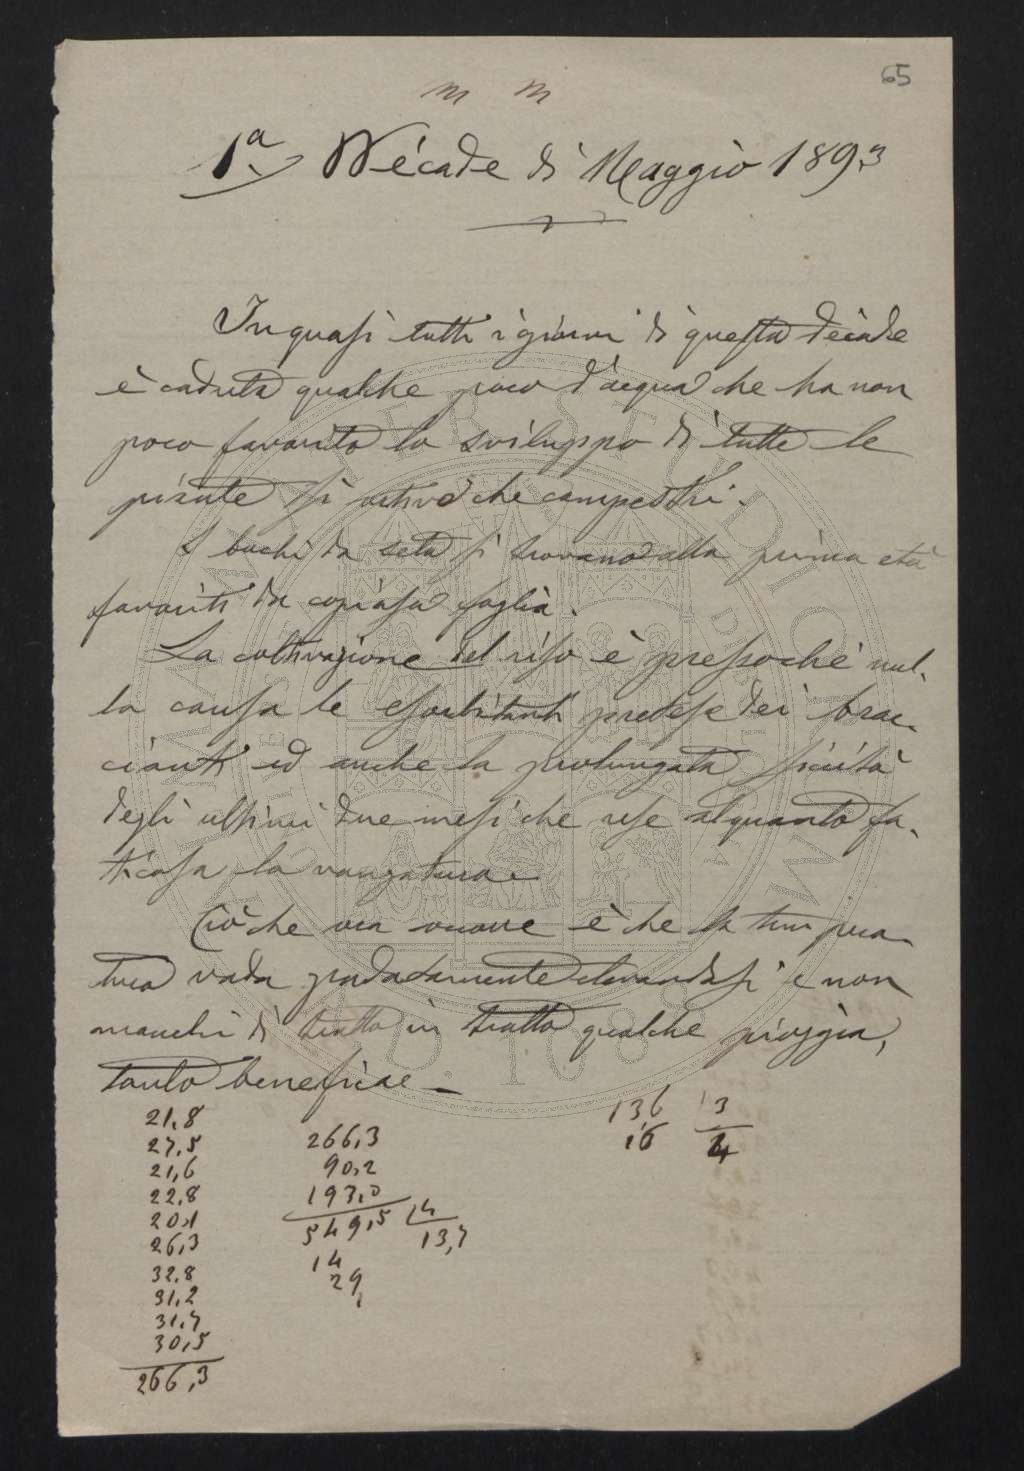 65
m m
1ª Decade di Maggio 1893
In quasi tutti i giorni di questa decade
è caduta qualche poco d'acqua che ha non
poco favorito lo sviluppo di tutte le
piante sì ortive che campestri.
I bachi da seta si trovano alla prima età
favoriti da copiosa foglia.
La coltivazione del riso è pressochè nul-
la causa le esorbitanti pretese dei brac-
cianti ed anche la prolungata siccità
degli ultimi due mesi che rese alquanto fa-
ticosa la vangatura.
Ciò che ora occorre è che la tempera-
tura vada gradatamente elevandosi e non
manchi di tratto in tratto qualche pioggia,
tanto benefica
21,8
27,5
21,6
22,8
20,1
26,3
32,8
31,2
31,7
30,5
266,3
266,3
90,2
193,0
549,5 14
14 13,7
29
136 3
16